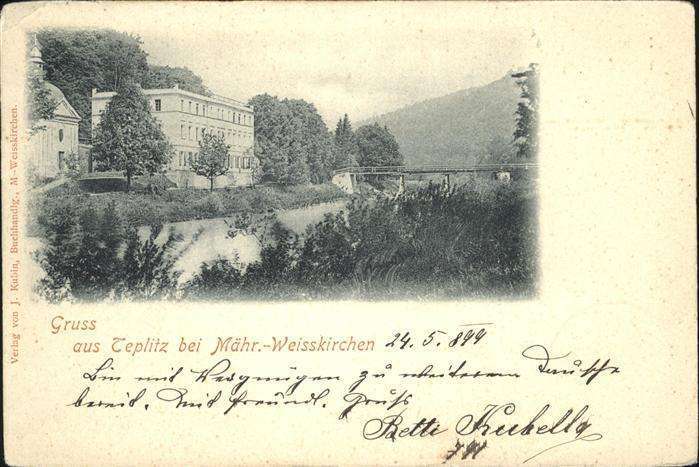 Verlag von J. Kubin, Buchhandlg., M-Weisskirchen.
Gruss
aus Teplitz bei Mähr.-Weisskirchen 24. 5. 899
Bin mit Vergnügen zu weiterem Tausche
bereit. Mit freundl. Gruß
Betti Kubella